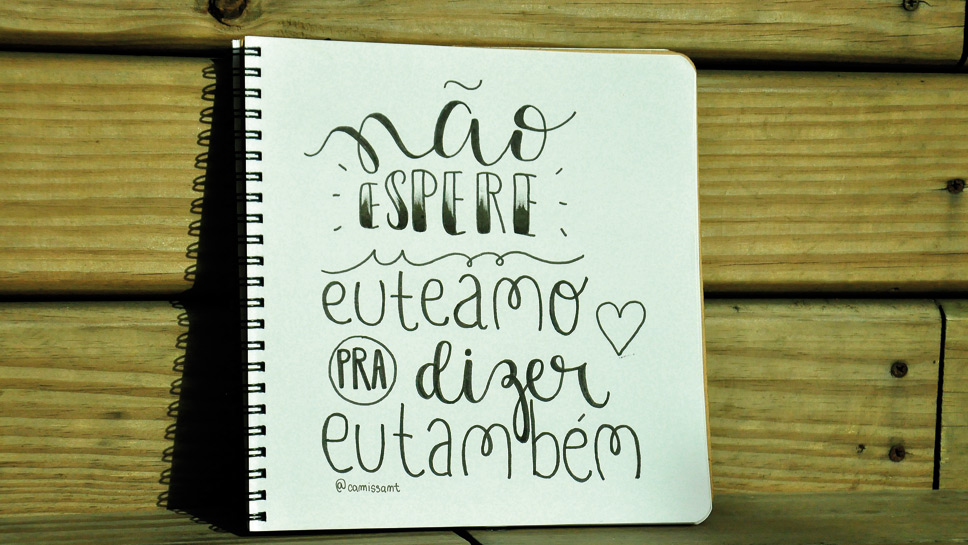 não
ESPERE
euteamo
PRA dizer
eutambém
@camissant